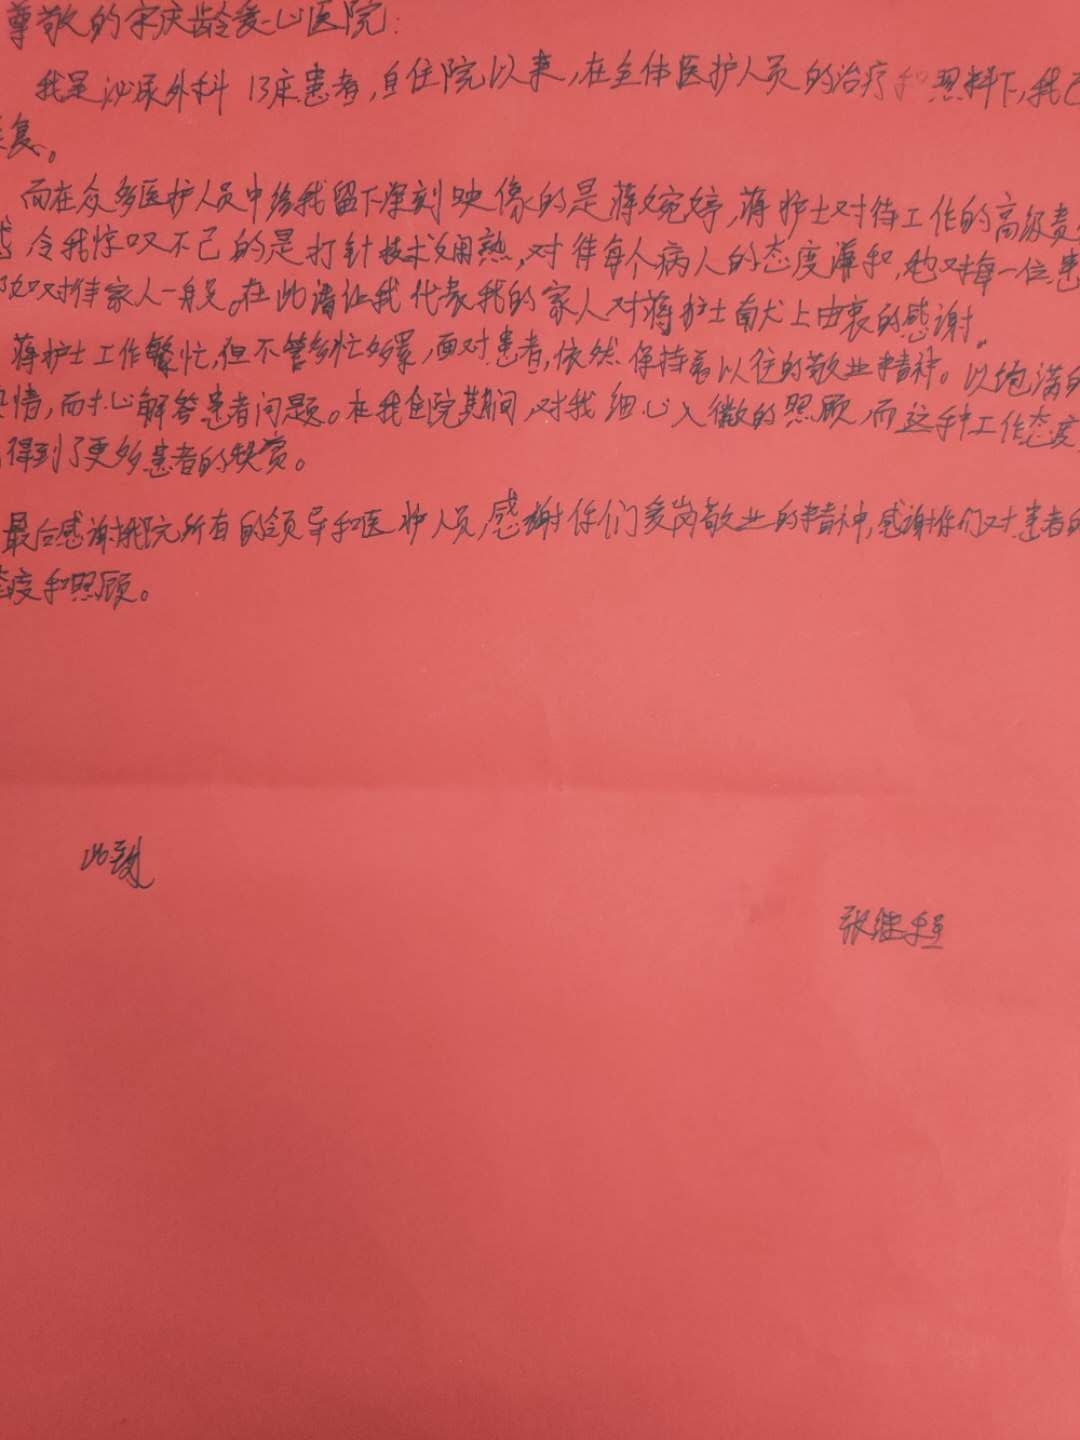 尊敬的宋庆龄爱心医院:
我是泌尿外科 13床患者,自住院以来,在全体医护人员的治疗和照料下,我已
复。
而在众多医护人员中给我留下深刻映像的是蒋婉婷,蒋护士对待工作的高级责
令我惊叹不已的是打针技术娴熟,对待每个病人的态度谦和,她对每一位患
如对待家人一般。在此请让我代表我的家人对蒋护士献上由衷的感谢。
蒋护士工作繁忙,但不管多忙多累,面对患者,依然保持着以往的敬业精神。以饱满的
情,耐心解答患者问题。在我住院期间,对我细心入微的照顾,而这种工作态度
得到了更多患者的赞赏。
最后感谢我院所有的领导和医护人员,感谢你们爱岗敬业的精神,感谢你们对患者的
态度和照顾。
此致
张继